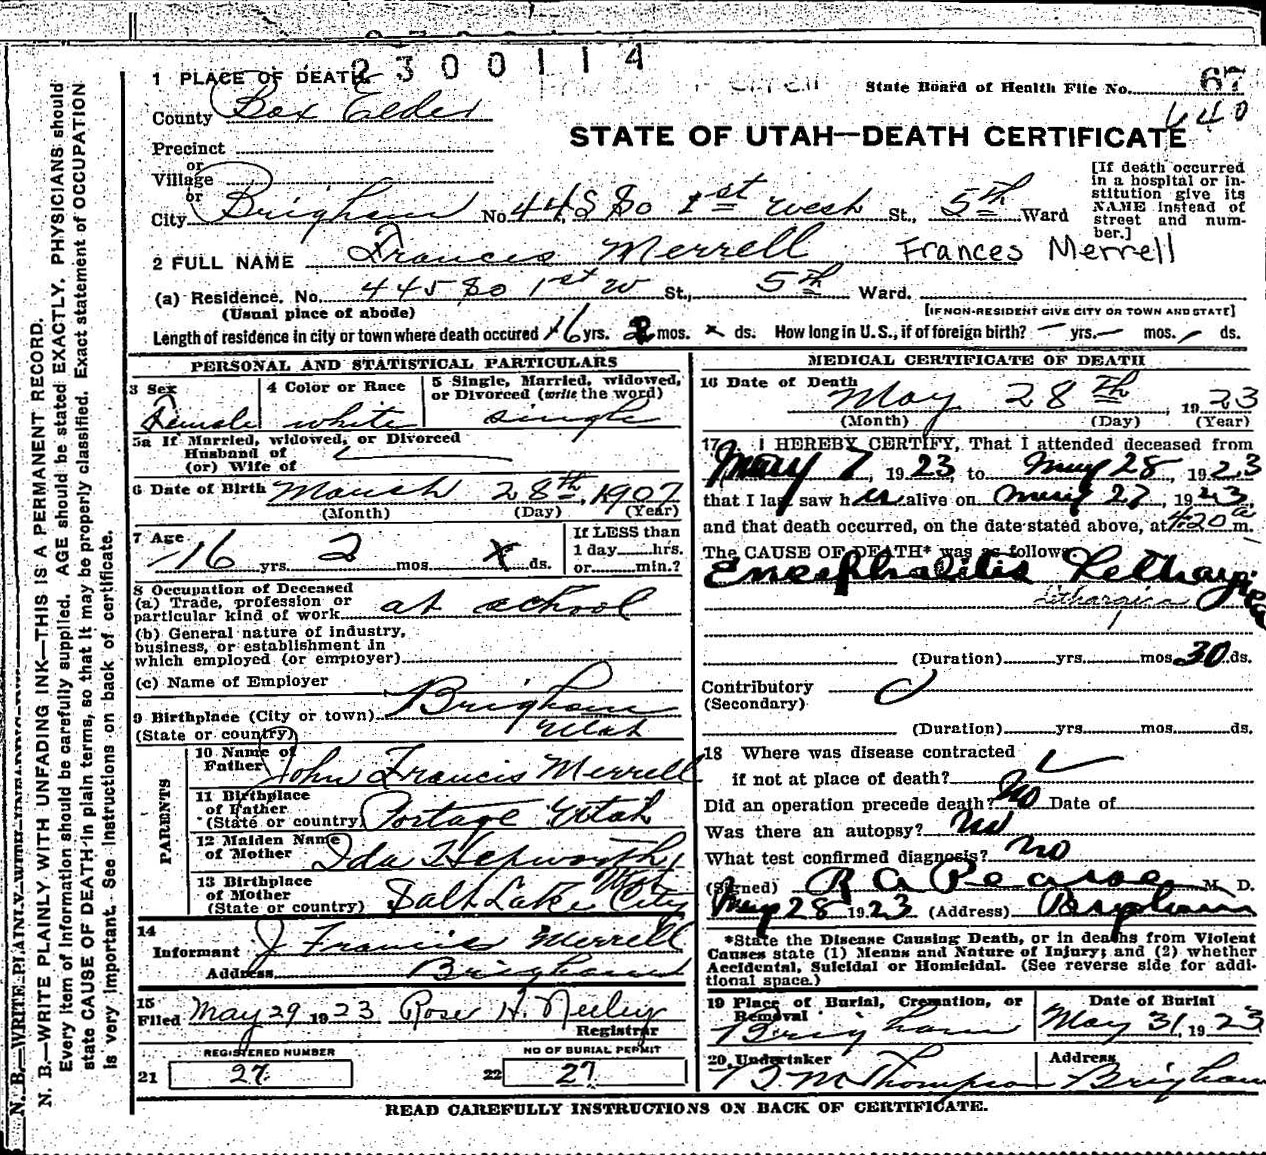 2300114
1 PLACE OF DEATH
State Board of Health File No. 67
640
County Box Elder
STATE OF UTAH—DEATH CERTIFICATE
Precinct
or
Village
or
City Brigham No. 445 So 1st West St., 5th Ward
[If death occurred
in a hospital or in-
stitution give its
NAME instead of
street and num-
ber.]
2 FULL NAME Francis Merrell Frances Merrell
(a) Residence. No. 445 So 1st W St., 5th Ward.
(Usual place of abode) [IF NON-RESIDENT GIVE CITY OR TOWN AND STATE]
Length of residence in city or town where death occured 16 yrs. 2 mos. x ds. How long in U.S., if of foreign birth? — yrs. — mos. ds.
PERSONAL AND STATISTICAL PARTICULARS
3 Sex
Female
4 Color or Race
white
5 Single, Married, widowed,
or Divorced (write the word)
single
5a If Married, widowed, or Divorced
Husband of
(or) Wife of
6 Date of Birth March 28th, 1907
(Month) (Day) (Year)
7 Age
16 yrs. 2 mos. x ds.
If LESS than
1 day hrs.
or min.?
8 Occupation of Deceased
(a) Trade, profession or
particular kind of work at school
(b) General nature of industry,
business, or establishment in
which employed (or employer)
(c) Name of Employer
9 Birthplace (City or town) Brigham
(State or country) Utah
PARENTS
10 Name of
Father John Francis Merrell
11 Birthplace
of Father
(State or country) Portage Utah
12 Maiden Name
of Mother Ida Hepworth
13 Birthplace
of Mother
(State or country) Salt Lake City
14
Informant J Francis Merrell
Address Brigham
15
Filed May 29 1923 Rose H. Neeley
Registrar
REGISTERED NUMBER
21 27
NO OF BURIAL PERMIT
22 27
MEDICAL CERTIFICATE OF DEATH
16 Date of Death
May 28th, 1923
(Month) (Day) (Year)
17 I HEREBY CERTIFY, That I attended deceased from
May 7, 1923 to May 28, 1923
that I last saw her alive on May 27, 1923
and that death occurred, on the date stated above, at 4:20 a m.
The CAUSE OF DEATH* was as follows
Encephalitis Lethargica
Lethargica
(Duration) yrs. mos. 30 ds.
Contributory
(Secondary)
(Duration) yrs. mos. ds.
18 Where was disease contracted
if not at place of death?
Did an operation precede death? No Date of
Was there an autopsy? No
What test confirmed diagnosis? No
(Signed) R A Pearse M. D.
May 28 1923 (Address) Brigham
*State the Disease Causing Death, or in deaths from Violent
Causes state (1) Means and Nature of Injury; and (2) whether
Accidental, Suicidal or Homicidal. (See reverse side for addi-
tional space.)
19 Place of Burial, Cremation, or
Removal
Brigham
Date of Burial
May 31, 1923
20 Undertaker
B M Thompson
Address
Brigham
READ CAREFULLY INSTRUCTIONS ON BACK OF CERTIFICATE.
N. B.—WRITE PLAINLY WITH UNFADING INK—THIS IS A PERMANENT RECORD.
Every item of information should be carefully supplied. AGE should be stated EXACTLY. PHYSICIANS should
state CAUSE OF DEATH in plain terms, so that it may be properly classified. Exact statement of OCCUPATION
is very important. See instructions on back of certificate.